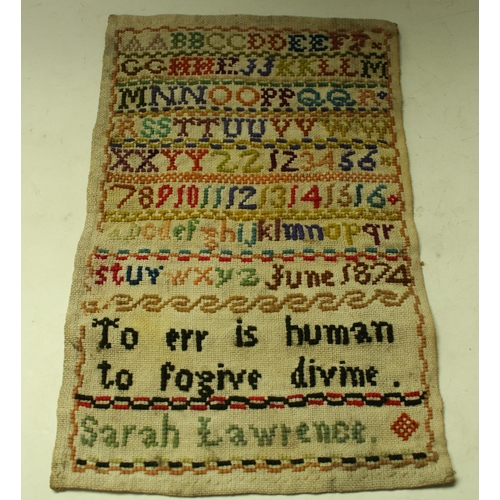 AABBCCDDEEFF
GGHHEJJKKLLM
MNNOOPPQQR
RSSTTUUVVWW
XXYYZZ123456
78910111213141516
abcdefghijklmnopqr
stuvwxyz June 1874
To err is human
to fogive divine.
Sarah Lawrence.